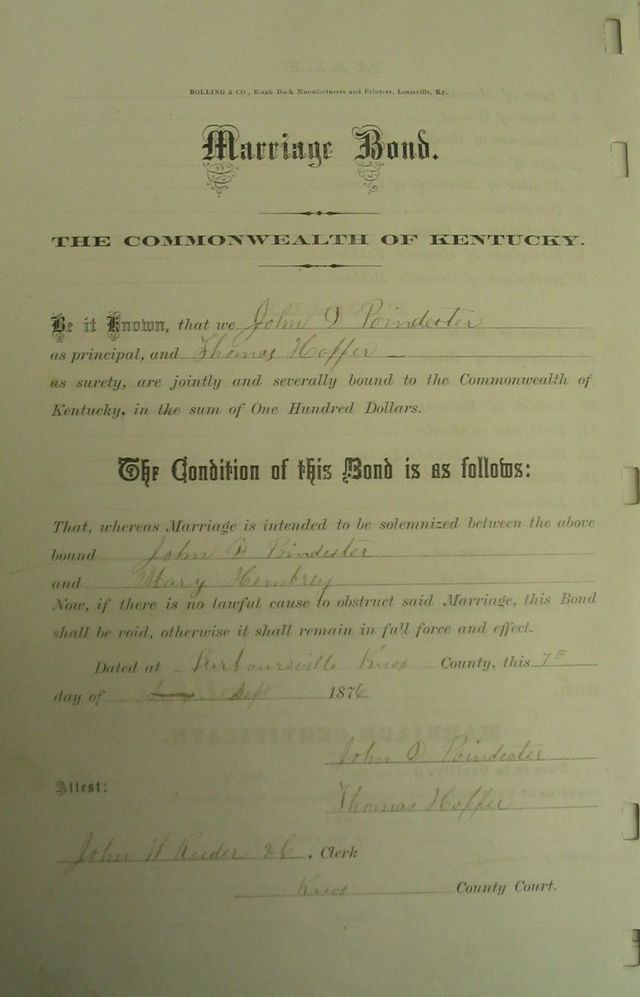 BOLLING & CO., Blank Book Manufacturers and Printers, Louisville, Ky.
Marriage Bond.
THE COMMONWEALTH OF KENTUCKY.
Be it Known, that we John D Poindexter
as principal, and Thomas Hoffer
as surety, are jointly and severally bound to the Commonwealth of
Kentucky, in the sum of One Hundred Dollars.
The Condition of this Bond is as follows:
That, whereas Marriage is intended to be solemnized between the above
bound John D Poindexter
and Mary Hembrey
Now, if there is no lawful cause to obstruct said Marriage, this Bond
shall be void, otherwise it shall remain in full force and effect.
Dated at Barboursville Knox County, this 7th
day of Sept 1876
John D Poindexter
Attest:
Thomas Hoffer
John W Reeder , Clerk
Knox County Court.